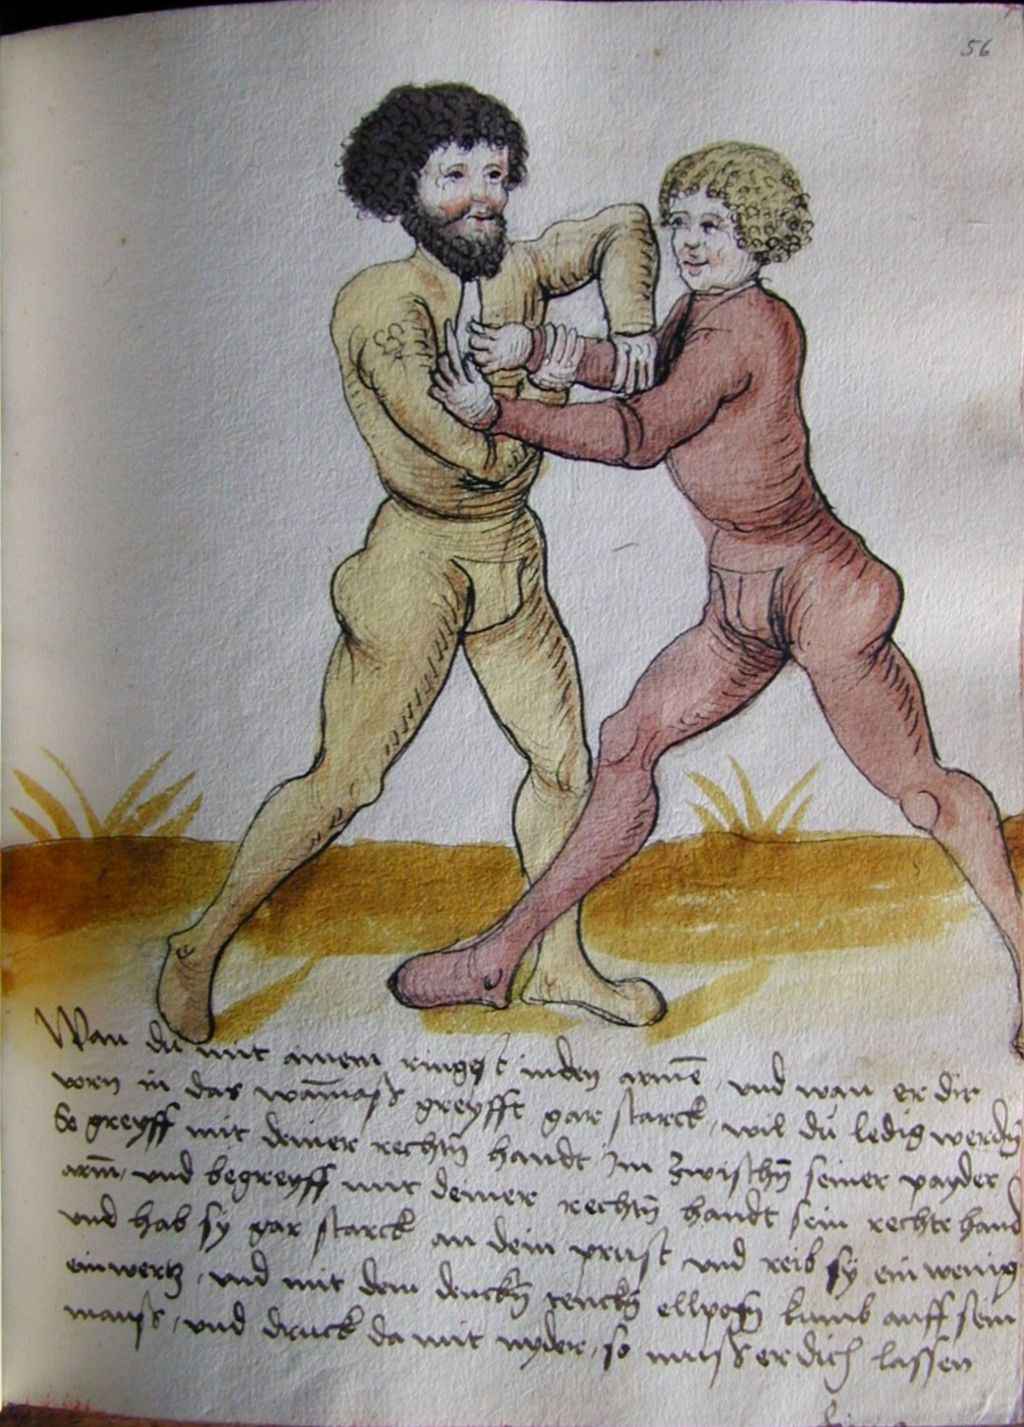 56
Wan du mit ainem ringest in den armē / vnd wan er dir
vorn in das wāmass greyfft gar starck / wil du ledig werdn̄
So greyff mit deiner rechtn̄ handt Im zwischn̄ seiner payder
arm̄ / vnd begreyff mit deiner rechtn̄ handt sein rechte hand
vnd hab sy gar starck an dein prust vnd reib sy ein wenig
einwertz / vnd mit dem denckn̄ ellpogn̄ kumb auff sein
mauss / vnd druck da mit nyder / so muss er dich lassen